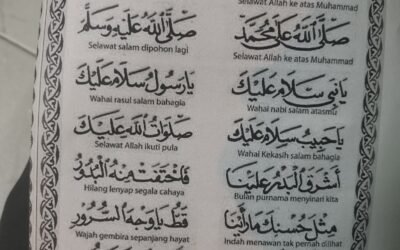 Selawat Allah ke atas Muhammad
صَلَّى اللهُ عَلَى مُحَمَّدٍ
صَلَّى اللهُ عَلَيْهِ وَسَلَّمَ
Selawat Allah ke atas Muhammad
Selawat salam dipohon lagi
يَانَبِي سَلَامٌ عَلَيْكَ
يَارَسُولْ سَلَامٌ عَلَيْكَ
Wahai nabi salam atasmu
Wahai rasul salam bahagia
يَاحَبِيبْ سَلَامٌ عَلَيْكَ
صَلَوَاتُ اللهِ عَلَيْكَ
Wahai Kekasih salam bahagia
Selawat Allah ikuti pula
أَشْرَقَ الْبَدْرُ عَلَيْنَا
فَاخْتَفَتْ مِنْهُ الْبُدُوْ
Bulan purnama menyinari kita
Hilang lenyap segala cahaya
مِثْلَ حُسْنِكَ مَارَأَيْنَا
قَطُّ يَاوَجْهَ السُّرُوْرِ
Indah menawan tak pernah dilihat
Wajah gembira sepanjang hayat